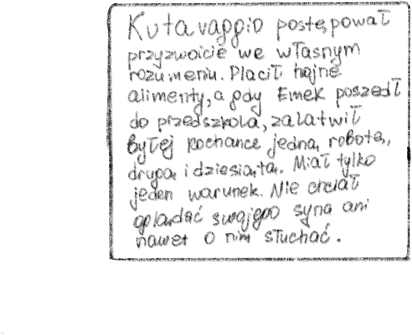 Kutavaggio postępował
przyzwoicie we własnym
rozumieniu. Płacił hojne
alimenty, a gdy Emek poszedł
do przedszkola, załatwił
byłej kochance jedną robotę,
drugą i dziesiątą. Miał tylko
jeden warunek. Nie chciał
oglądać swojego syna ani
nawet o nim słuchać.